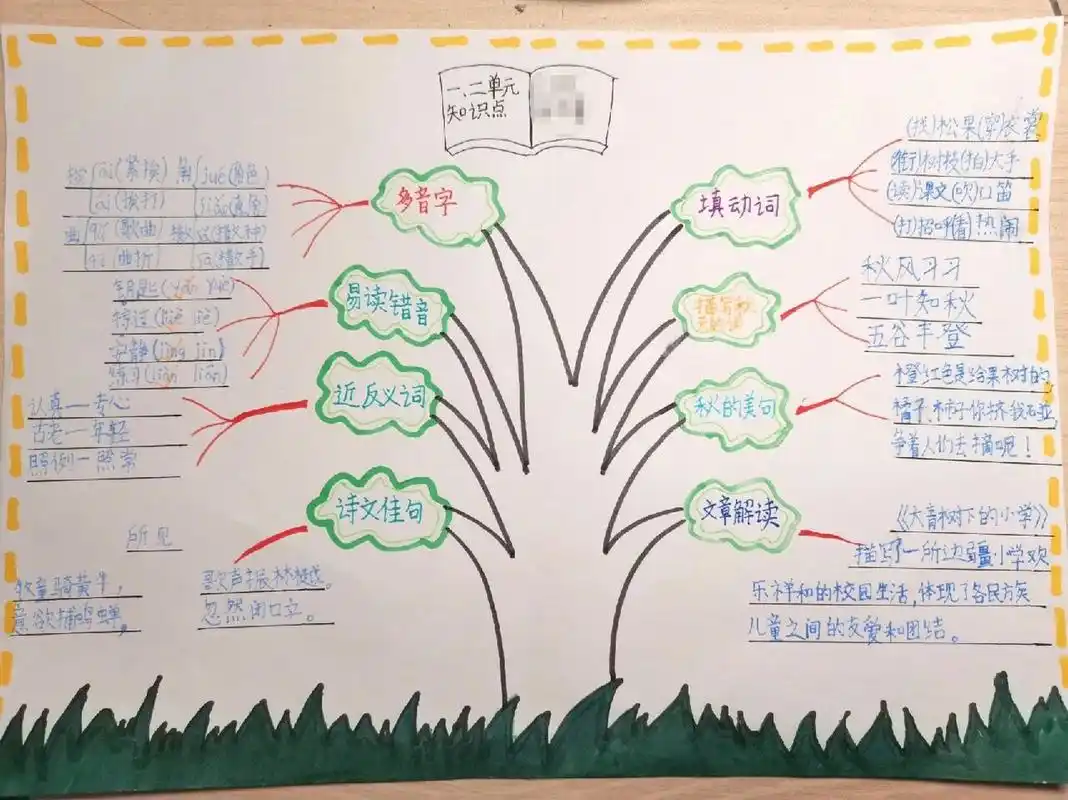 一、二单元
知识点
多音字
挨 āi(紧挨) 角 jué(角色)
ái(挨打)
曲 qǔ(歌曲)
qū(曲折)
易读错音
安静(jìng jìn)
练习(liàn
近反义词
认真一专心
古老一年轻
照例一照常
诗文佳句
所见
牧童骑黄牛,
歌声振林樾。
意欲捕鸣蝉,
忽然闭口立。
填动词
(找)松果(穿)衣裳
树枝(拍)大手
(读)课文(吹)口笛
(打)招呼(看)热闹
秋风习习
一叶知秋
五谷丰登
秋的美句
橙红色是给果树的,
橘子、柿子你挤我碰,
争着人们去摘呢!
文章解读
《大青树下的小学》
描写了一所边疆小学欢
乐祥和的校园生活,体现了各民族
儿童之间的友爱和团结。